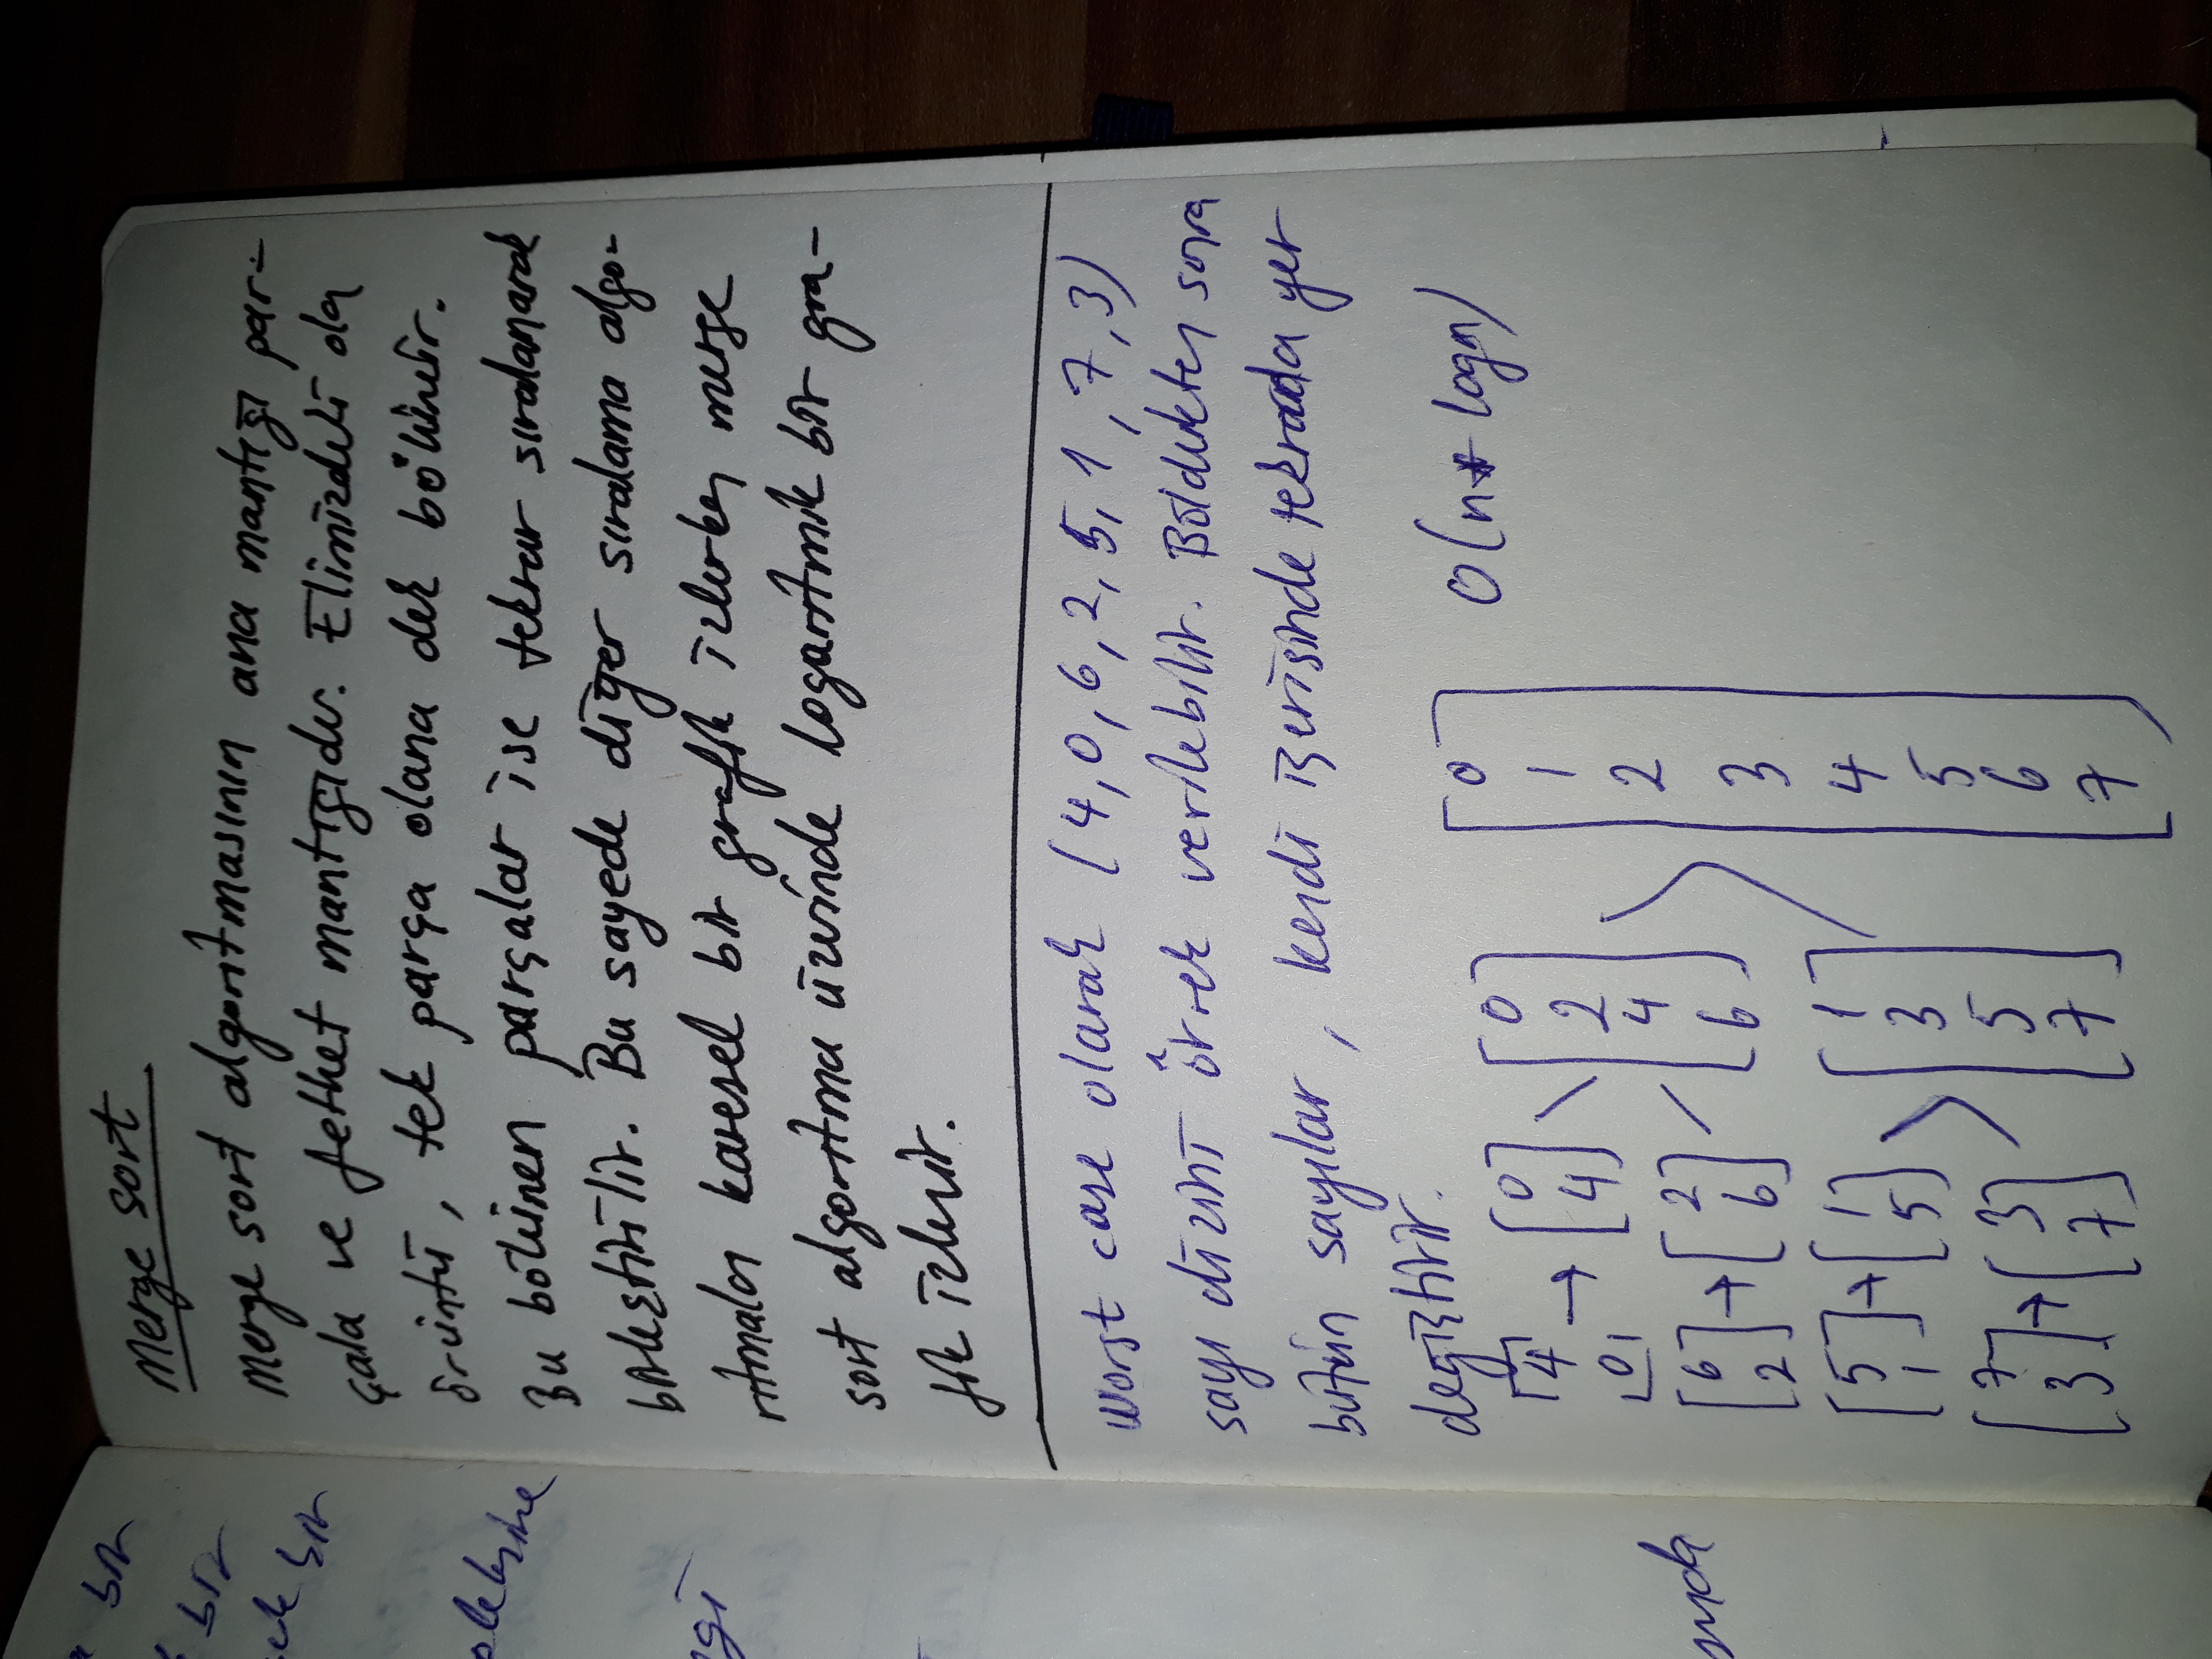 bir
bir
bir
Merge sort
Merge sort algoritmasının ana mantığı par-
çala ve fethet mantığıdır. Elimizdeki ola
örüntü, tek parça olana dek bölünür.
Bu bölünen parçalar ise tekrar sıralanarak
birleştirilir. Bu sayede diğer sıralama algo-
ritmaları karesel bir grafik izlerken merge
sort algoritma üzerinde logaritmik bir gra-
fik izlenir.
Worst case olarak (4,0,6,2,5,1,7,3)
sayı dizini örnek verilebilir. Böldükten sonra
bütün sayılar, kendi içerisinde tekrarda yer
değiştirir.
O(n* logn)
4 0 → 0 4
6 2 → 2 6
0 2 4 6
5 1 → 1 5
7 3 → 3 7
1 3 5 7
0 1 2 3 4 5 6 7